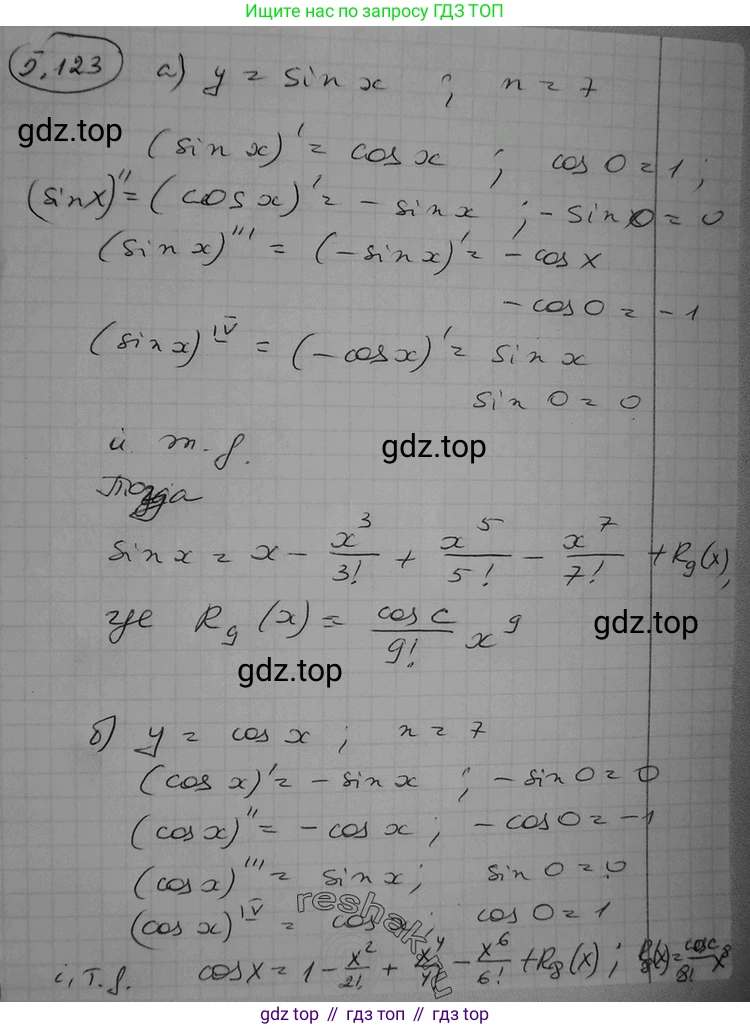 Ищите нас по запросу ГДЗ ТОП
5.123 а) y = sin x ; n = 7
gdz.top
(sin x)' = cos x ; cos 0 = 1 ;
(sin x)'' = (cos x)' = - sin x ; - sin 0 = 0
(sin x)''' = (- sin x)' = - cos x
- cos 0 = - 1
(sin x)^IV = (- cos x)' = sin x
sin 0 = 0
и т. д.
gdz.top
Тогда
sin x = x - x³/3! + x⁵/5! - x⁷/7! + R₉(x),
где R₉(x) = cos c/9! x⁹
gdz.top
gdz.top
б) y = cos x ; n = 7
(cos x)' = - sin x ; - sin 0 = 0
(cos x)'' = - cos x ; - cos 0 = - 1
(cos x)''' = sin x ; sin 0 = 0
(cos x)^IV = cos x ; cos 0 = 1
reshak.ru
и т. д. cos x = 1 - x²/2! + x⁴/4! - x⁶/6! + R₈(x) ; R₈(x) = cos c/8! x⁸
gdz top // гдз топ // gdz top // гдз топ